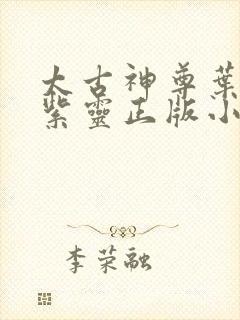 太古神尊葉
紫靈正版小
李荣融